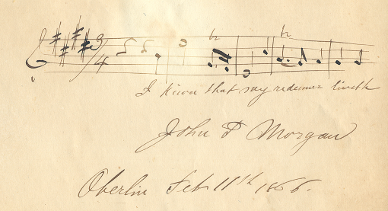 3/4
tr tr
I know that my redeemer liveth
John P Morgan
Oberlin Feb 11th 1866.